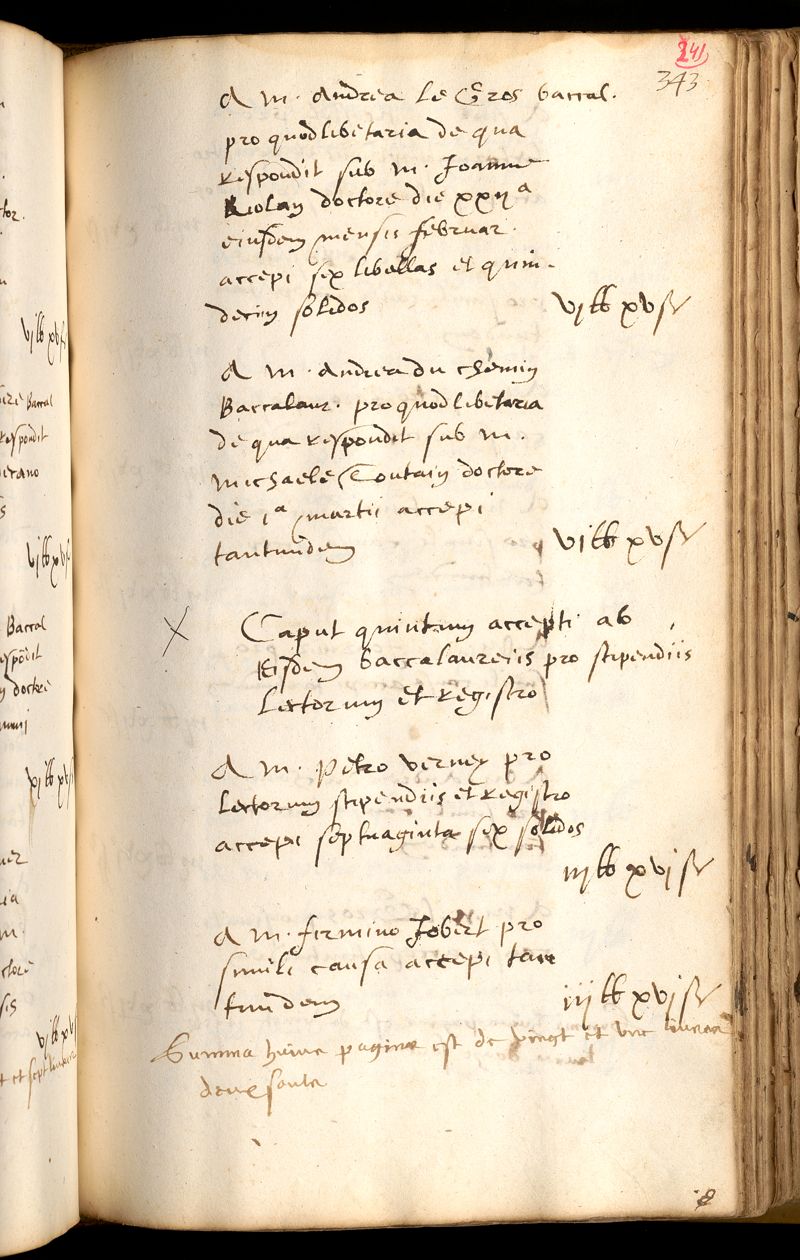 241
343
A M. Andrea Le Gros baccal.
pro quodlibetaria de qua
respondit sub M. Joanne
Riolan doctore die xxija
eiusdem mensis februar.
accepi sex libellas et quin-
decim solidos vjlb xvss
A M. Andrea du chemin
Baccalaur. pro quodlibetaria
de qua respondit sub M.
Michaele Contain doctore
die ia martii accepi
tantundem vilb xvss
X Caput quintum accepti ab
Eisdem baccalaureiis pro stipendiis
Lectorum et Registro
A M. Petro verney pro
Lectorum stipendiis et Registro
accepi septuaginta sex solidos
iijlb xvjss
A M. firmino Jobert pro
simili causa accepi tan
tundem iijlb xvjss
Summa huius paginae est de vingt et une
deux soulz
vjlb xvss
Baccal
respondit
s
vjlb xvss
Baccal
doctore
vjlb xvss
ia
M.
ctore
sis
vjlb xvss
et sept